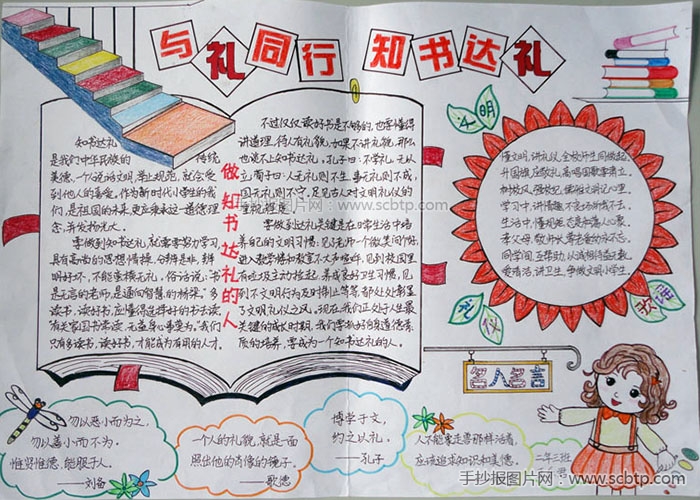 与礼同行 知书达礼
知书达礼
是我们中华民族的 传统
美德。一个说话文明，举止规范，就会受
到他人的喜爱。作为新时代小学生的我
们，是祖国的未来，更应秉承这一道德理
念，并发扬光大。
要做到知书达礼，就需要努力学习，
具有高尚的思想情操，分辨是非，辨
明好坏，不能蛮横无礼。俗话说：书
是无言的老师，是通向智慧的桥梁。多
读书，读好书，应懂得选择好的书去读
我们
只有多读书，读好书，才能成为有用的人才。
做知书达礼的人
不过仅仅读好书是不够的，也要懂得
讲道理，待人有礼貌，如果不讲礼貌，那么
也谈不上知书达礼。孔子曰：不学礼，无从
立，荀子曰：人无礼则不生，事无礼则不成，
国无礼则不守，足见古人对文明礼仪的
重视程度。
要做到知书达礼关键是在日常生活中培
养自己的文明习惯：见了老师一个微笑问个好，
进入教学楼和教室不大声喧哗，
到不文明行为及时制止等等，都处处彰显
了文明礼仪之风。现在，我们正处于人生最
关键的成长时期，我们要搞好自道德素
质的培养，要成为一个知书达礼的人。
文明
懂文明，讲礼仪，全校师生同做起。
升国旗，应敬礼，高唱国歌要肃立。
树校风，强校纪，
学习中，讲情趣，不变功训我不去。
生活中，懂规范，
孝父母，敬师长，尊老爱幼永不忘。
同学间，互帮助，以诚相待益无数。
爱清洁，讲卫生，争做文明小学生。
礼仪 教课
名人名言
勿以恶小而为之，
勿以善小而不为。
惟贤惟德，能服于人。
——刘备
一个人的礼貌，就是一面
照出他的肖像的镜子。
——歌德
博学于文，
约之以礼。
——孔子
人不能象走兽那样活着，
应该追求知识和美德。
二年三班
手抄报图片网：www.scbtp.com
手抄报图片网：www.scbtp.com
手抄报图片网：www.scbtp.com